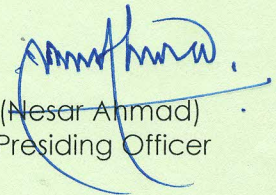 (Nesar Ahmad)
Presiding Officer